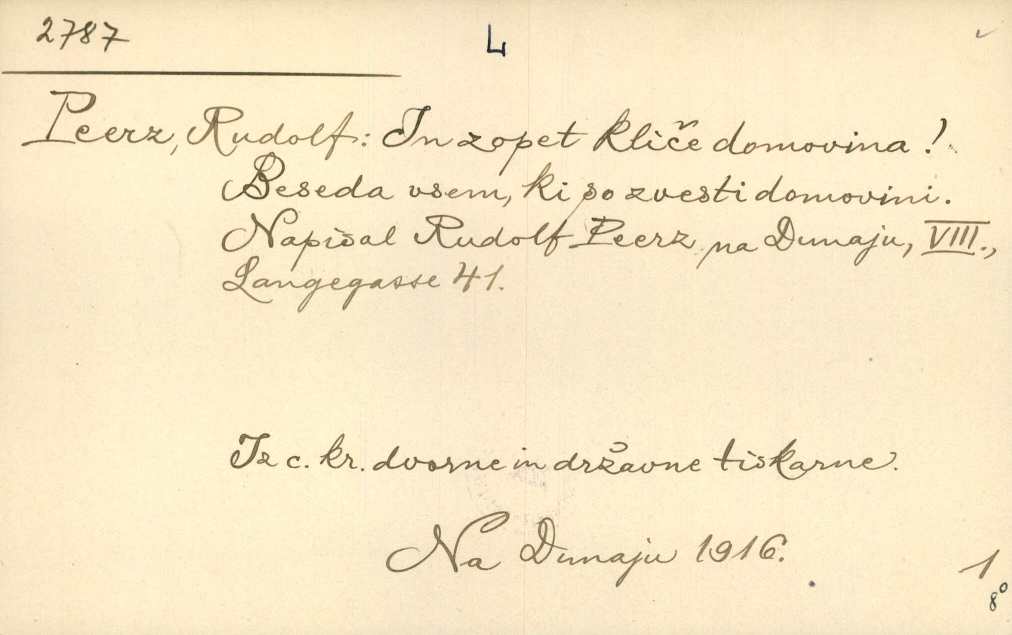 2787
L
Peerz, Rudolf: In zopet kliče domovina!
Beseda vsem, ki so zvesti domovini.
Napisal Rudolf Peerz na Dunaju, VIII.,
Langegasse 41.
Iz c. kr. dvorne in državne tiskarne.
Na Dunaju 1916.
1
8°